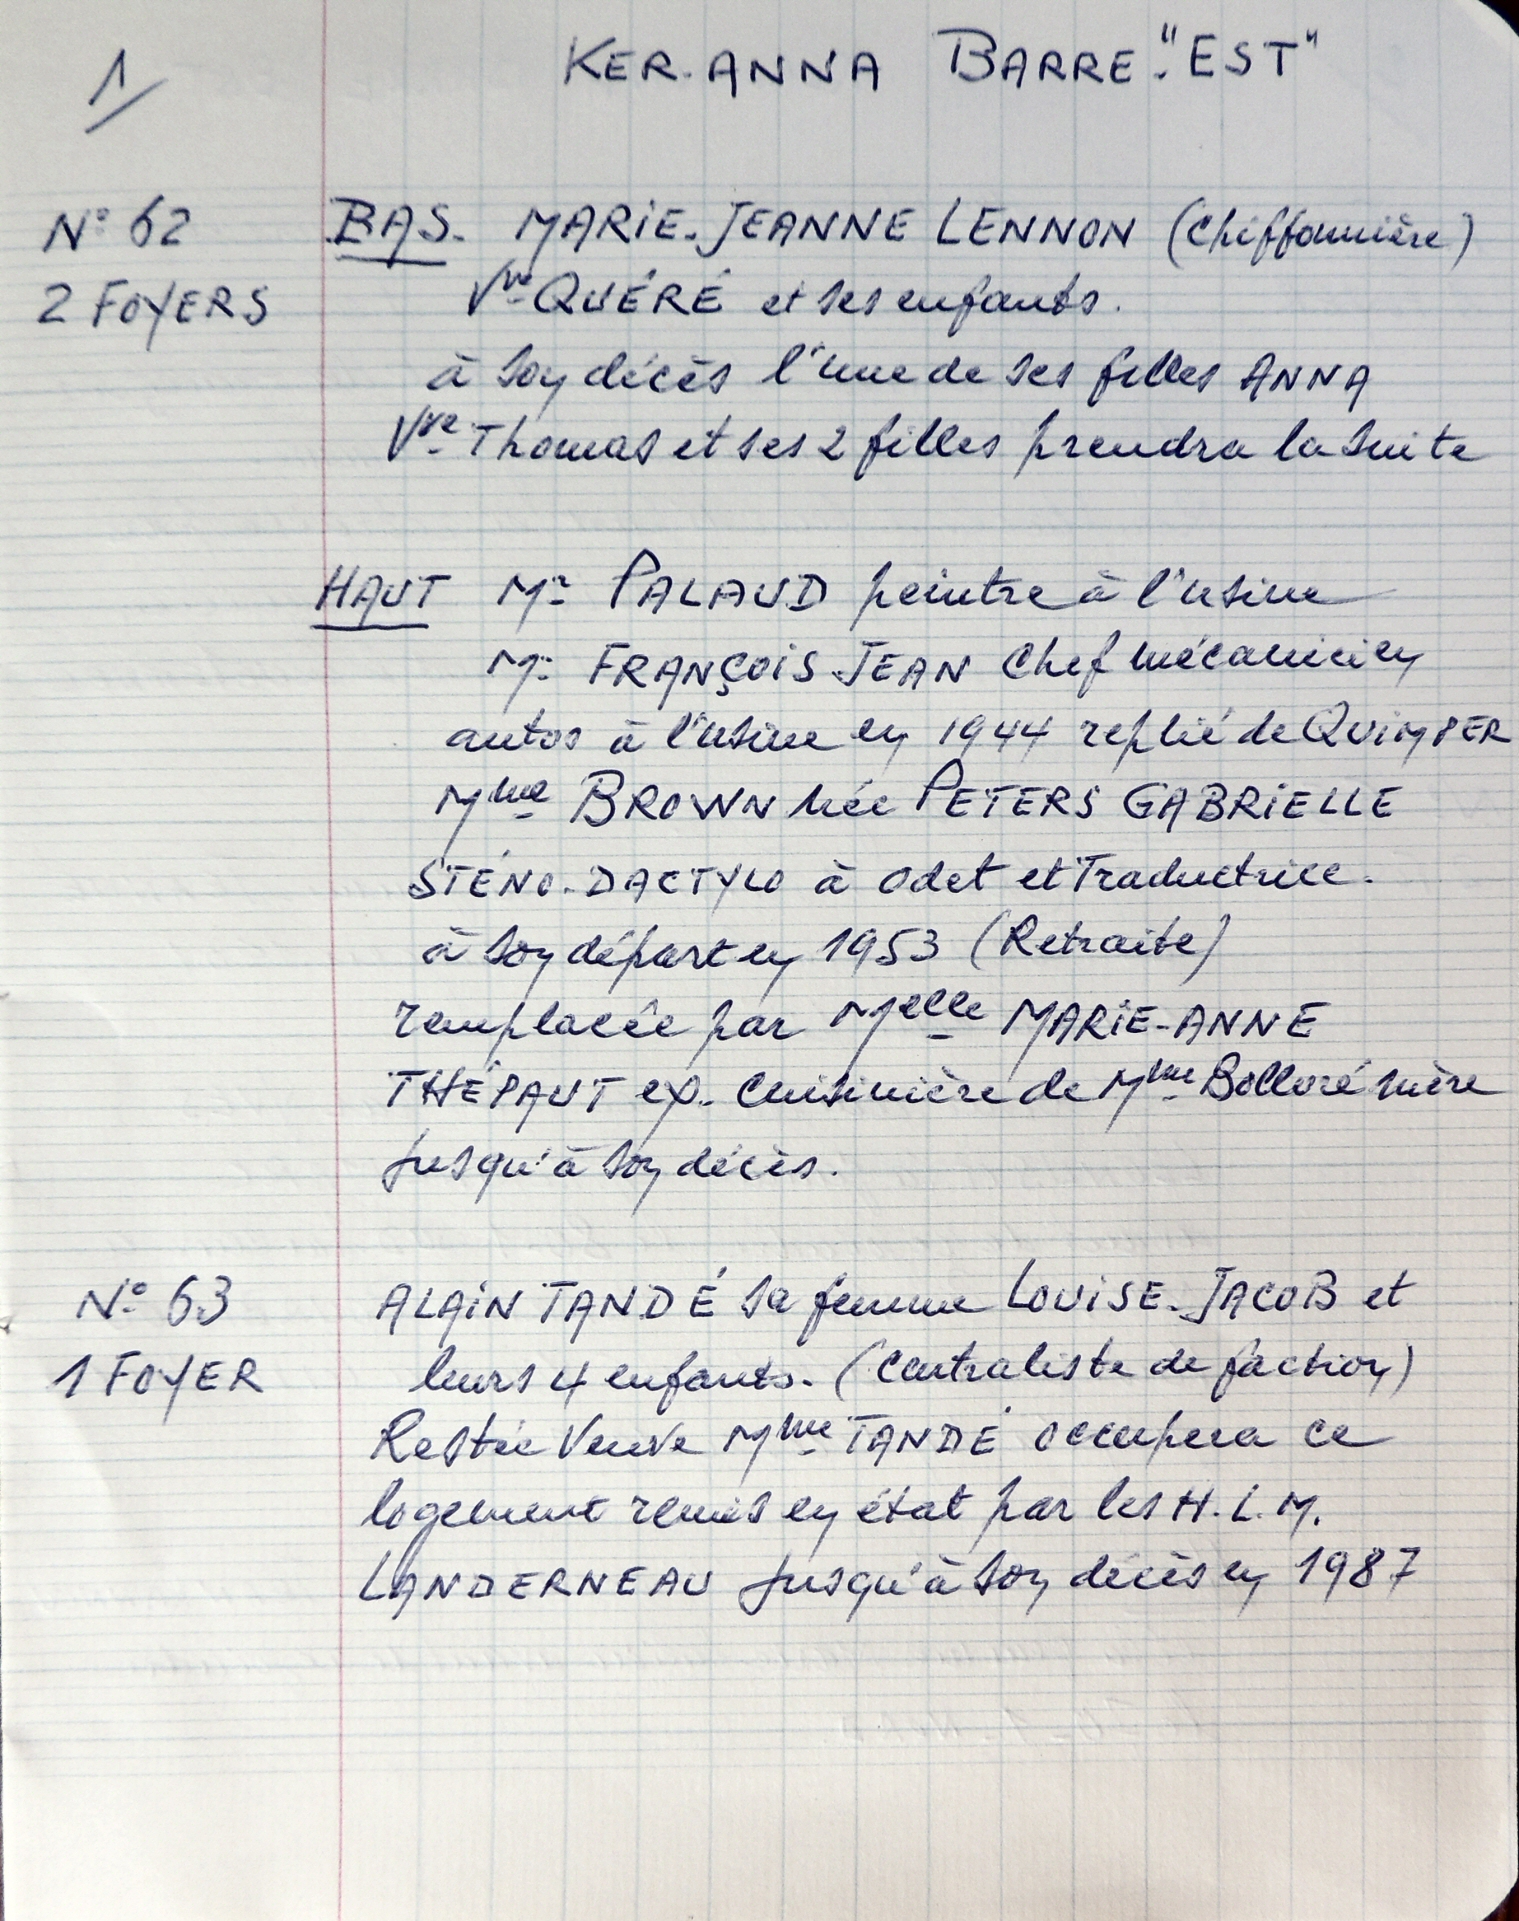 1/
KER-ANNA BARRE "EST"
N° 62
2 FOYERS
BAS. MARIE-JEANNE LENNON (Chiffonnière)
Vve QUÉRÉ et ses enfants.
à son décès l'une de ses filles ANNA
Vve Thomas et ses 2 filles prendra la suite
HAUT Mr PALAUD peintre à l'usine
Mr FRANÇOIS JEAN Chef mécanicien
autos à l'usine en 1944 replié de QUIMPER
Mme BROWN née PETERS GABRIELLE
STÉNO-DACTYLO à Odet et Traductrice.
à son départ en 1953 (Retraite)
remplacée par Melle MARIE-ANNE
THÉPAUT ex. Cuisinière de Mme Bolloré mère
jusqu'à son décès.
N° 63
1 FOYER
ALAIN TANDÉ sa femme LOUISE-JACOB et
leurs 4 enfants. (Centraliste de faction)
Restée Veuve Mme TANDÉ occupera ce
logement remis en état par les H.L.M.
LANDERNEAU jusqu'à son décès en 1987